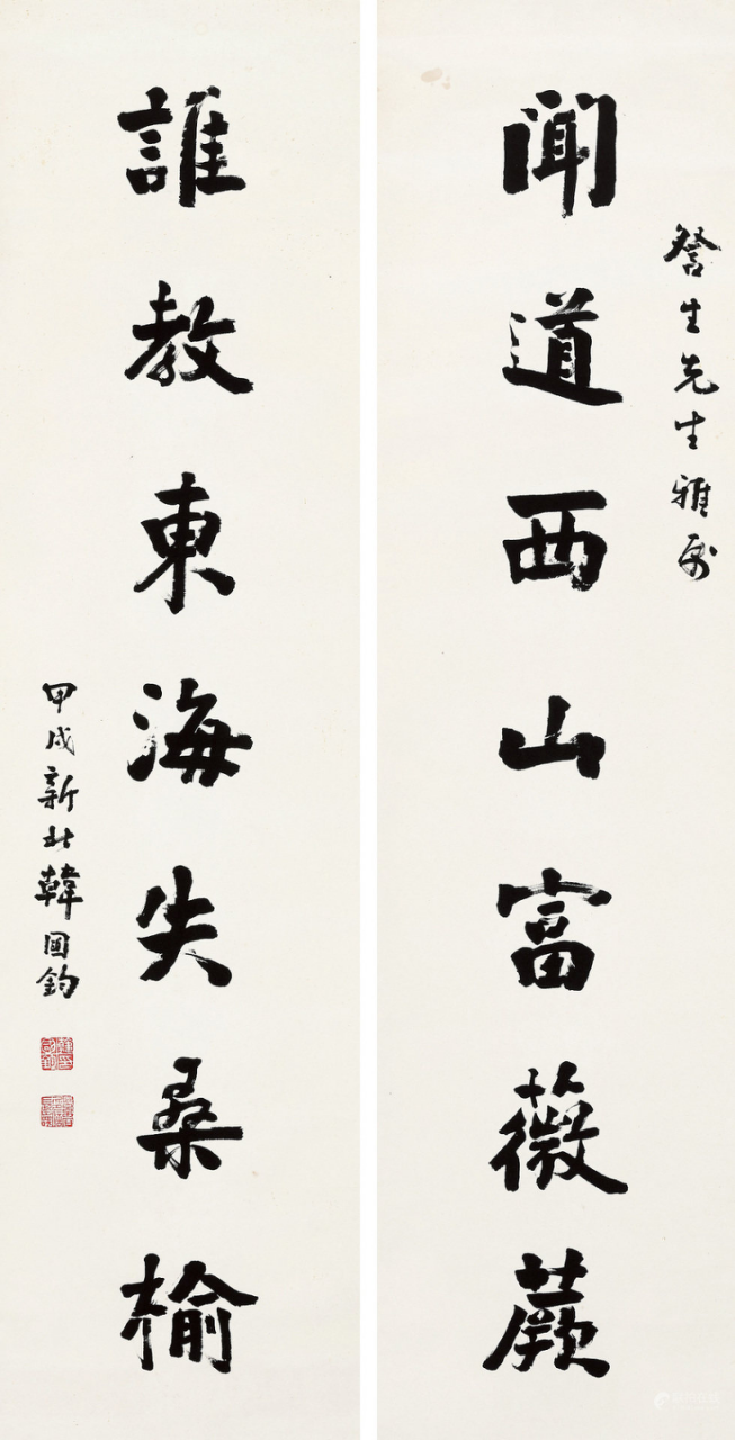 詧生先生雅屬
聞道西山富薇蕨
誰教東海失桑榆
甲戌新北韓國鈞